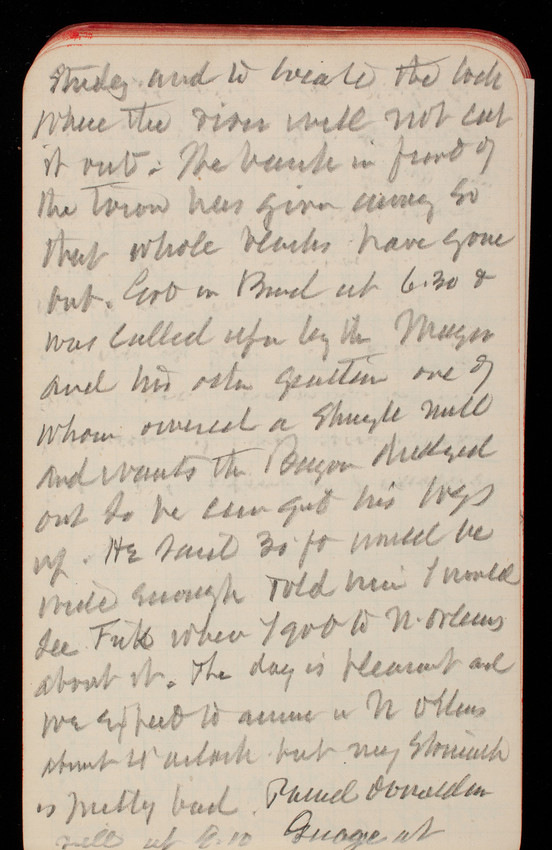 study and to locate the lock
where the river will not cut
it out. The bank in front of
the town has given away so
that whole blocks have gone
out. Got on Bud at 6.30 &
was called upon by the Mayor
and his other one of
whom owned a Shingle mill
and wants the Bayou dredged
out so he can get his logs
up. He said 30 ft would be
wide enough Told him I would
see when I got to N. Orleans
about it. The day is pleasant and
we expect to arrive in N Orleans
about o'clock but my Stomach
is pretty bad. Passed Donaldson
ville at 8.10 Guage at